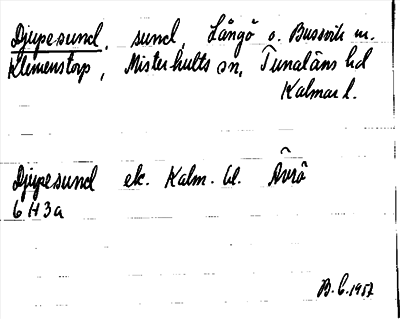 Djupesund, sund, Långö o. Bussvik m.
Klemenstorp, Misterhults sn, Tunaläns hd
Kalmar l.
Djupesund ek. Kalm. bl. Ävrö
6H3a
B.C. 1957